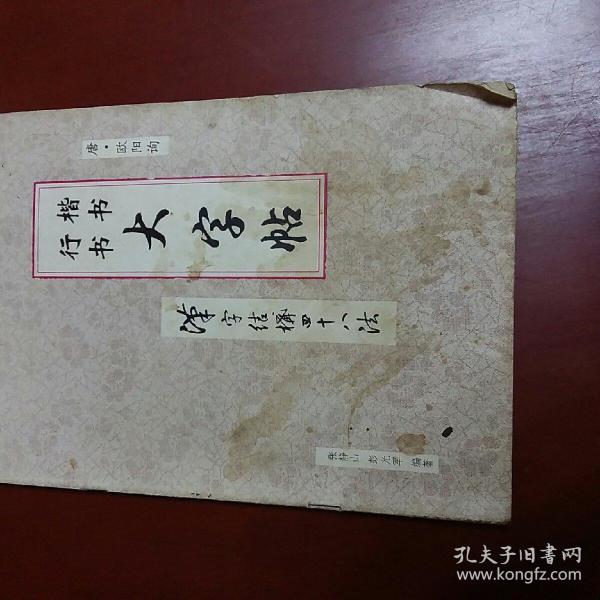 唐·欧阳询
楷书
行书
大字帖
漢字结構四十八法
张静山 彭光军 编著
孔夫子旧书网
www.kongfz.com